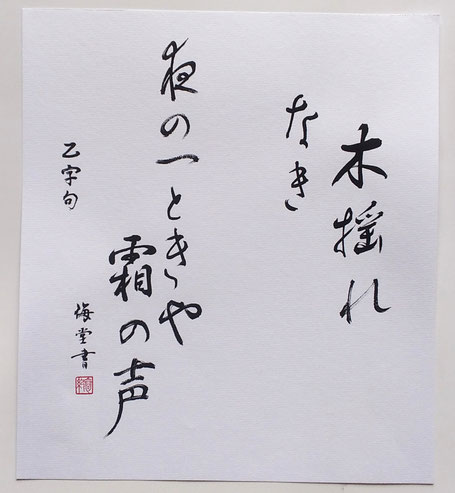 木揺れ
なき
夜の一ときや
霜の声
乙字句
梅堂書